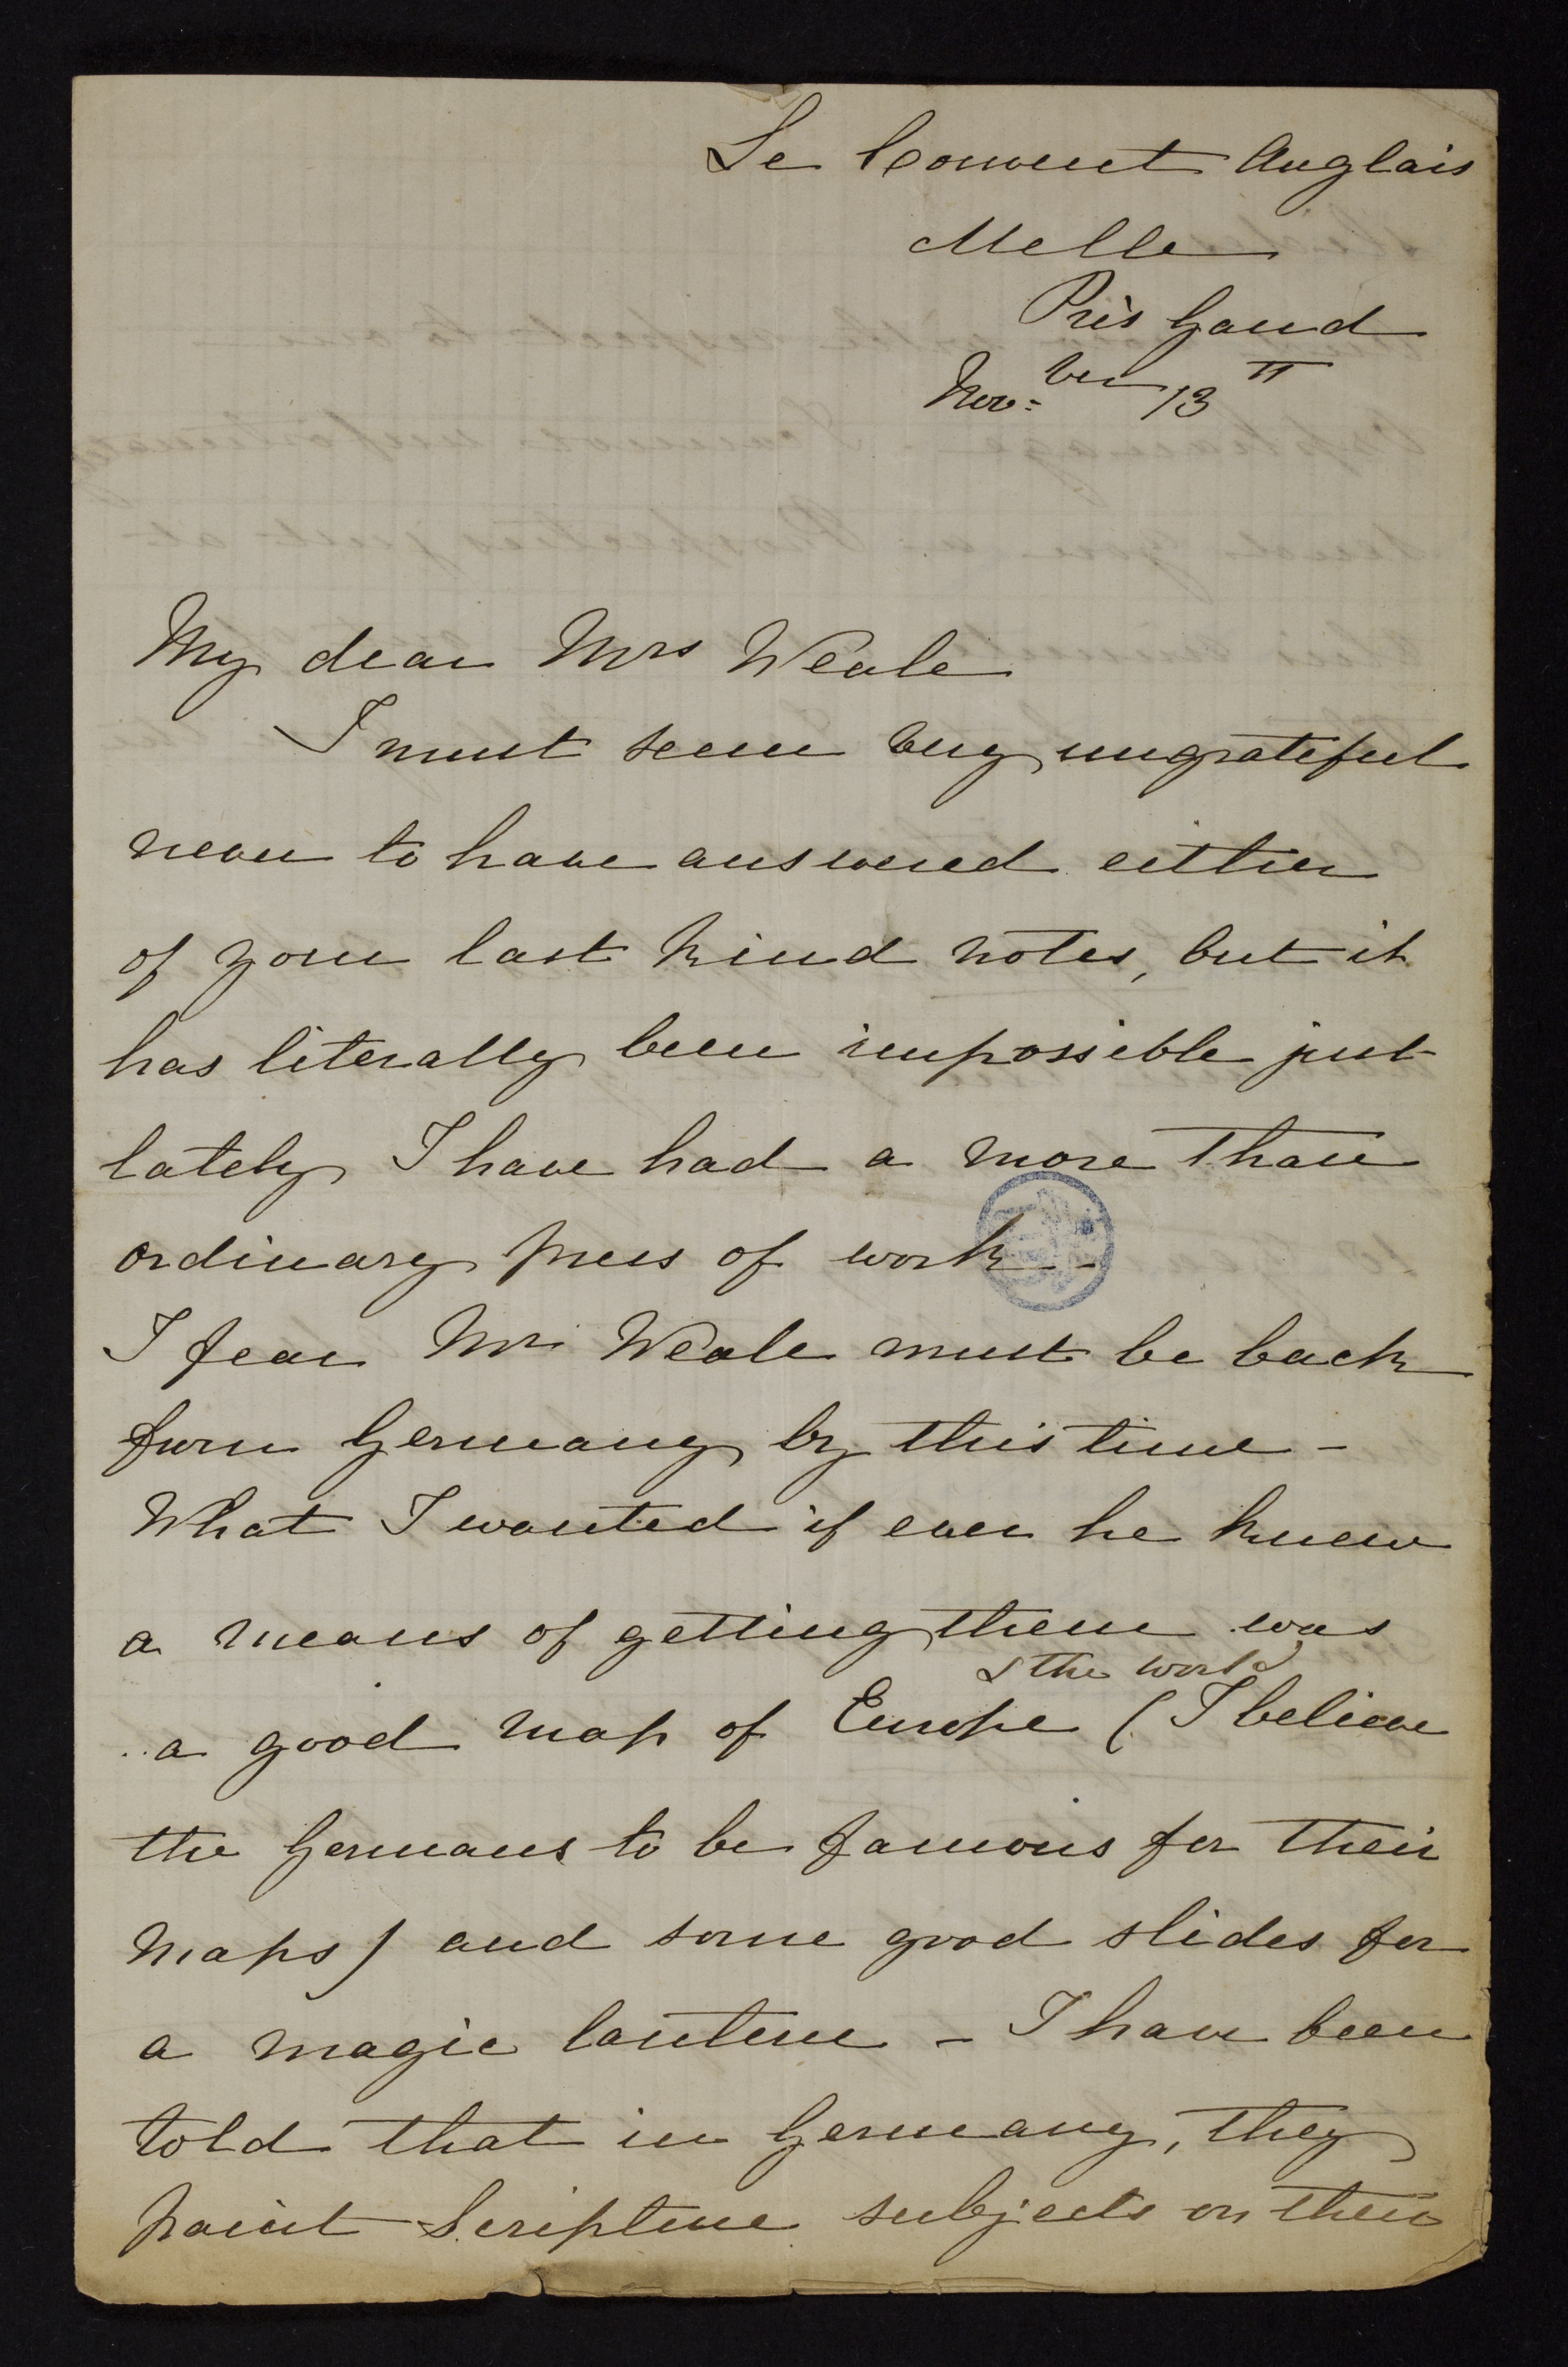 Le Convent Anglais
Melle
Près Gand
Nov:ber 13th
My dear Mrs Weale
I must seem very ungrateful
never to have answered either
of your last kind notes, but it
has literally been impossible just
lately, I have had a more than
ordinary press of work -
I fear Mr Weale must be back
from Germany by this time -
What I wanted if ever he knew
a means of getting them was
& the world
a good map of Europe (I believe
the Germans to be famous for their
maps) and some good slides for
a magic lantern - I have been
told that in Germany, they
paint Scripture subjects on their